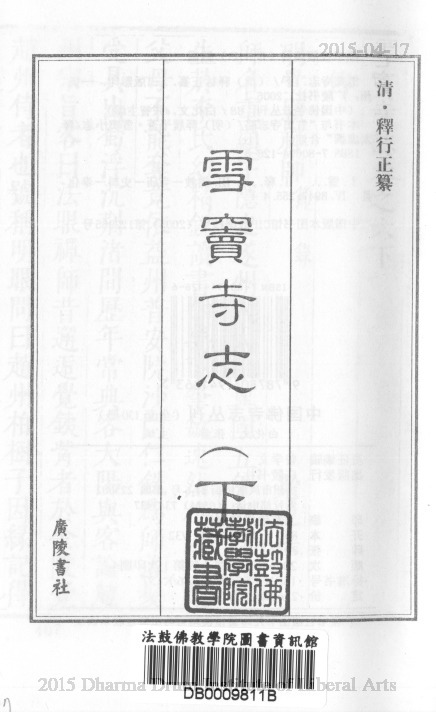 2015-04-17
清・釋行正纂
雪竇寺志（下
廣陵書社
法鼓佛教學院藏書
法鼓佛教學院圖書資訊館
DB0009811B
2015 Dharma Drum Institute of Liberal Arts